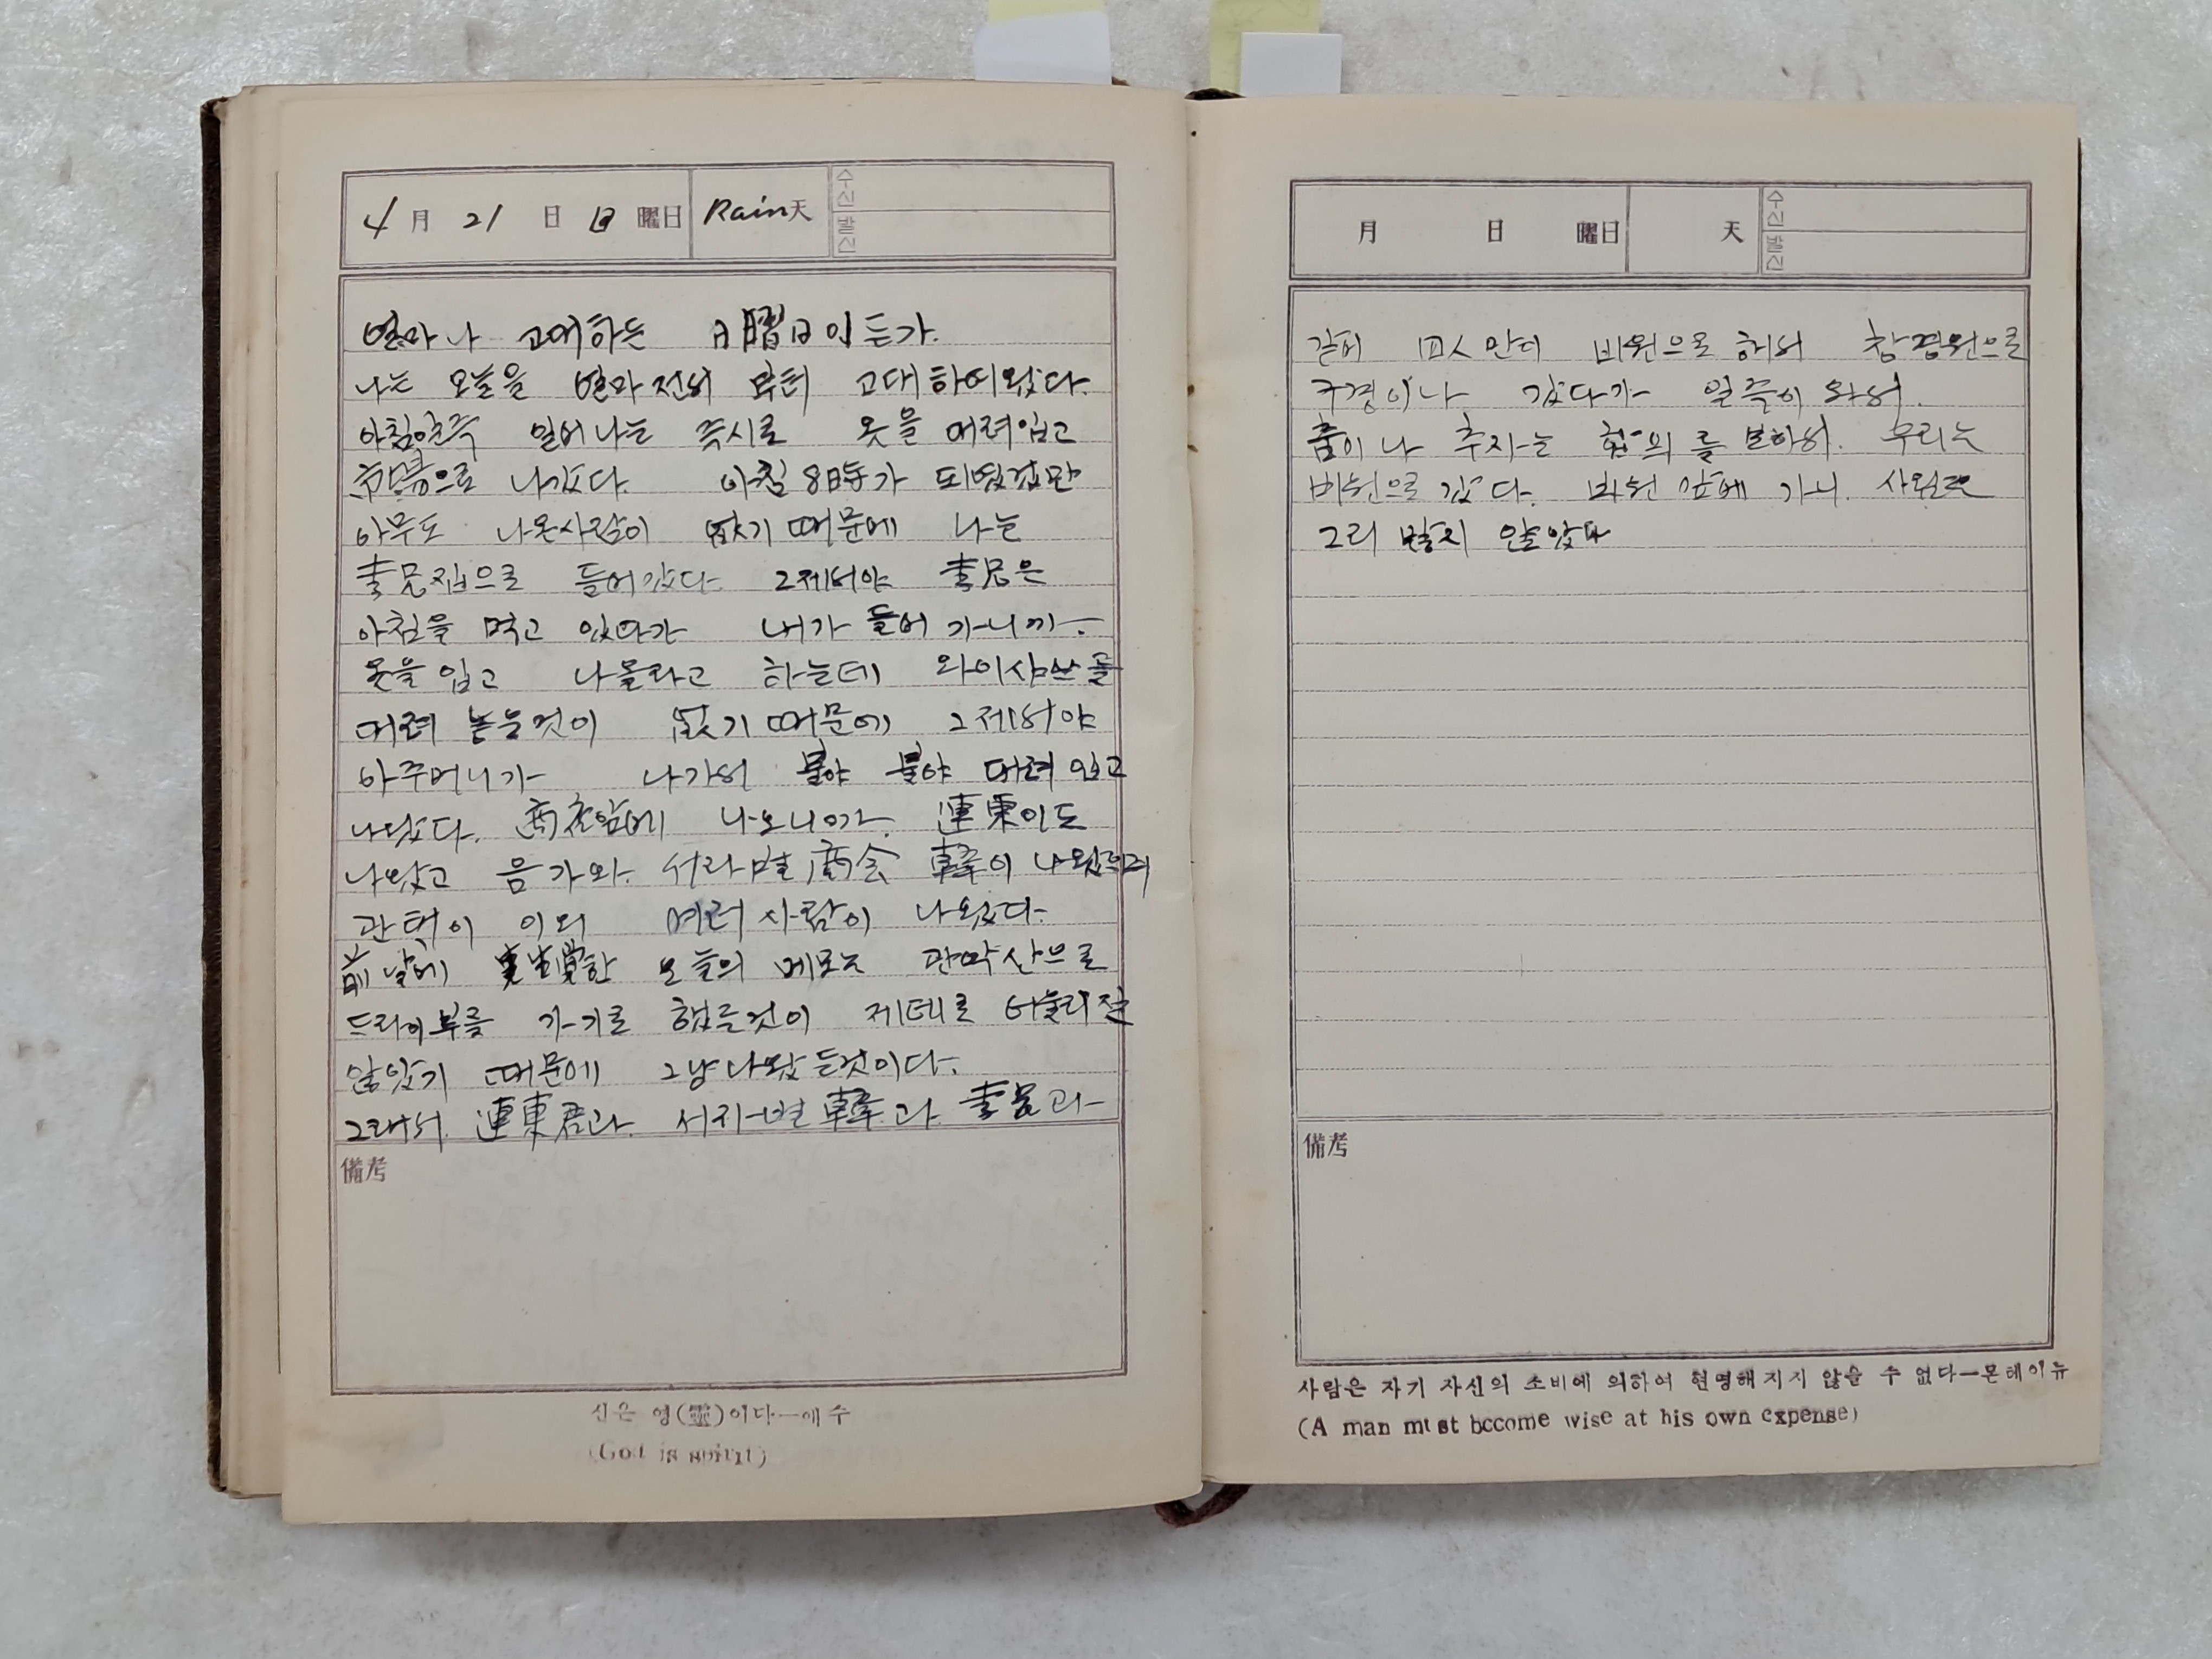 4月 21 日 日 曜日 Rain天
수신
발신
얼마나 고대하든 日曜日이든가.
나는 오늘을 얼마전서 부터 고대하여왔다.
아침일즉 일어나는 즉시로 옷을 대려입고
나갔다. 아침 8時가 되였것만
아무도 나온사람이 없기 때문에 나는
李兄집으로 들어갔다. 그제서야 李兄은
아침을 먹고 있다가 내가 들어 가니까.
옷을 입고 나올라고 하는데 와이샸쓰를
대려 논는것이 없기 때문에 그제서야
아주머니가 나가서 불야 불야 대려 입고
나났다. 앞에 나오니까. 連東이도
나왔고 음가와. 서라벌 商会 韓이 나왔으며
관택이 이외 여러 사람이 나왔다.
前날에 한 오늘의 메모는 관악산으로
드라이부를 가기로 했든것이 제데로 어울리질
않았기 때문에 그냥 나왔든것이다.
그래서. 連東君과. 서라벌 韓과 李兄과
備考
신은 영(靈)이다—애수
(God is spirit)
月 日 曜日 天
수신
발신
같이 四人만디 비원으로 해서 창경원으로
구경이나 갔다가 일즉이 와서.
춤이나 추자는 합의를 보하서. 우리는
비원으로 갔다. 비원 앞에 가니. 사원도
그리 많지 않았다
備考
사람은 자기 자신의 소비에 의하여 현명해 지지 않을 수 없다—몬테이뉴
(A man must become wise at his own expense)